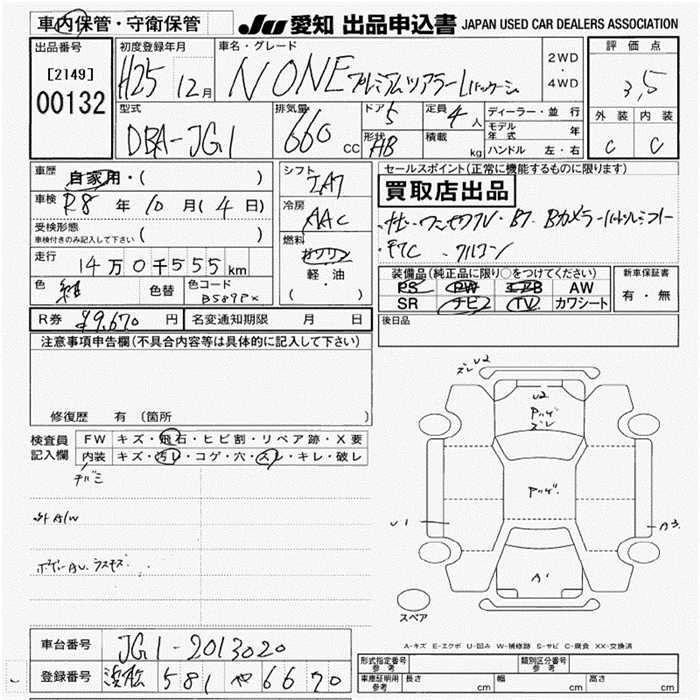 車内保管・守衛保管 JU 愛知 出品申込書 JAPAN USED CAR DEALERS ASSOCIATION
出品番号 初度登録年月 車名・グレード 評価点
[2149] H25 12月 N ONE プレミアムツアラーLパッケージ 2WD・4WD 3,5
00132 型式 排気量 ドア 5 定員 4人 ディーラー・並行 外装 内装
DBA-JG1 660cc 形状 HB 積載 kg モデル年式 年 C C
ハンドル 左・右
車歴 自家用・( ) シフト IA7 セールスポイント(正常に機能するものに限ります)
車検 R8年10月(4日) 冷房 AAC 買取店出品
受検形態 ( ) 燃料 ナビ・ワンセグTV・BT・Bカメラ
車検付きのみ記入して下さい ガソリン ETC・クルコン
走行 14万0千555km 軽油 装備品(純正品に限り○をつけてください) 新車保証書
色 紺 色替 色コード B589Px ( ) PS PW エアB AW 有・無
SR ナビ TV カワシート
R券 ¥9,670円 名変通知期限 月 日 後日品
注意事項申告欄(不具合内容等は具体的に記入して下さい)
修復歴 有(箇所 )
検査員記入欄 FW キズ・飛石・ヒビ割・リペア跡・X要
内装 キズ・汚レ・コゲ・穴・スレ・キレ・破レ
ズレ U2
U2
Pハゲ
ズレ
Pハゲ
U1
A3
A1
外A/W
ボデーAU
スペア
A-キズ E-エクボ U-凹み W-補修跡 S-サビ C-腐食 XX-交換済
車台番号 JG1-2013020
登録番号 浜松 581 や 6670
型式指定番号 参考 類別区分番号 参考
車庫証明用 参考 長さ cm 幅 cm 高さ cm